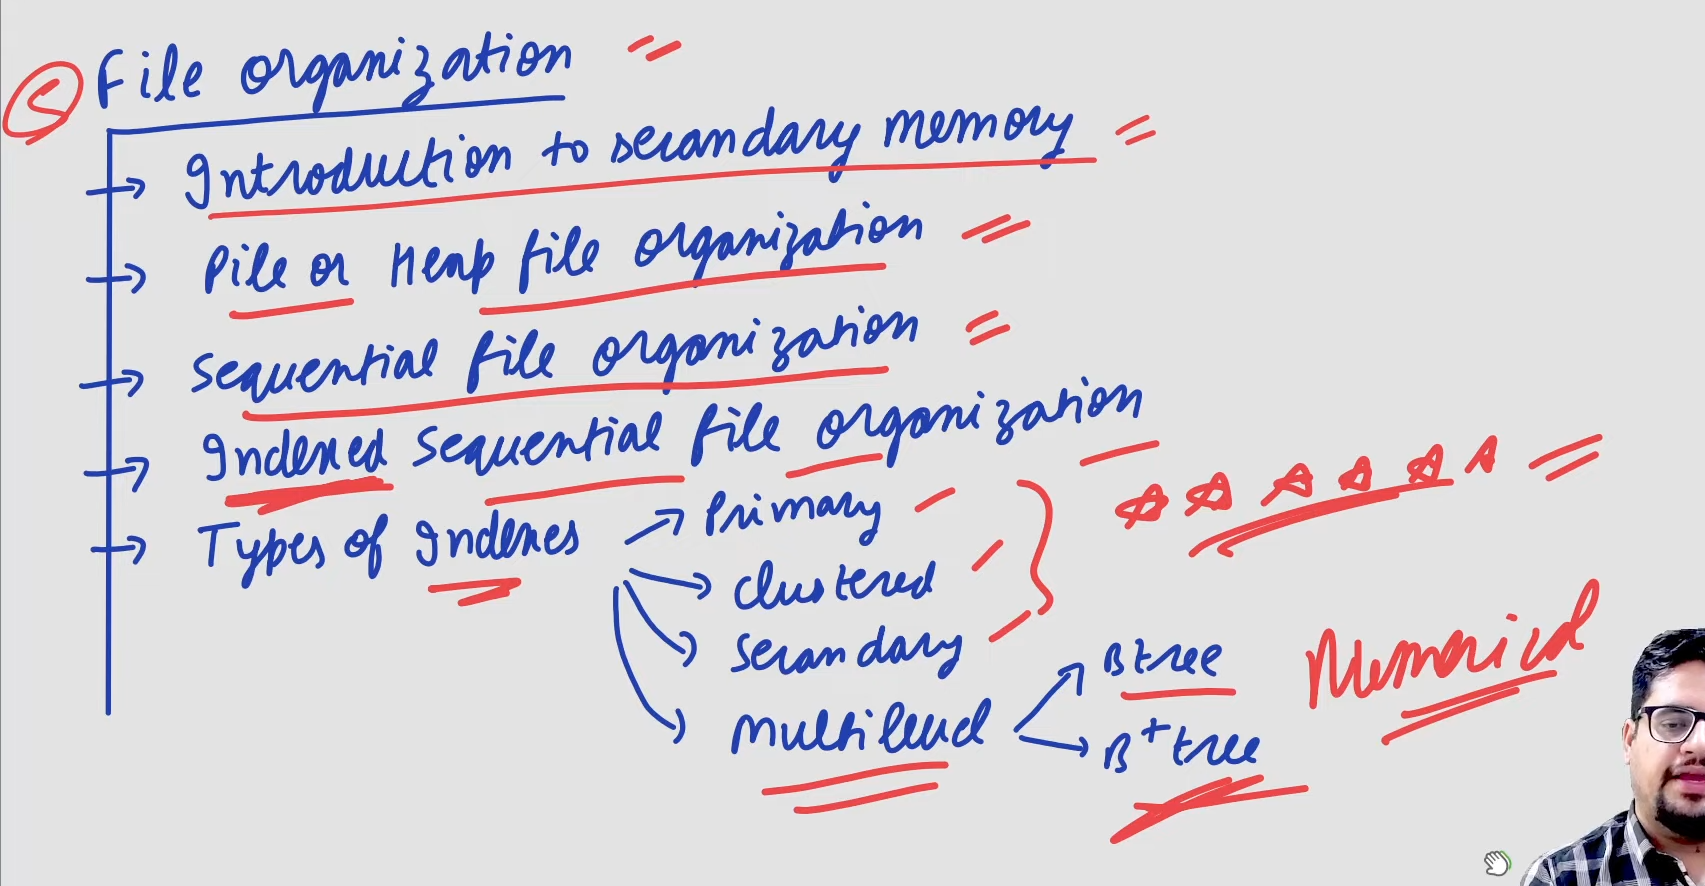 5 File organization
→ Introduction to secondary memory
→ Pile or Heap file organization
→ Sequential file organization
→ Indexed sequential file organization
→ Types of Indexes → Primary
→ Clustered
→ Secondary
→ Multilevel → B tree
→ B+ tree
Numerical